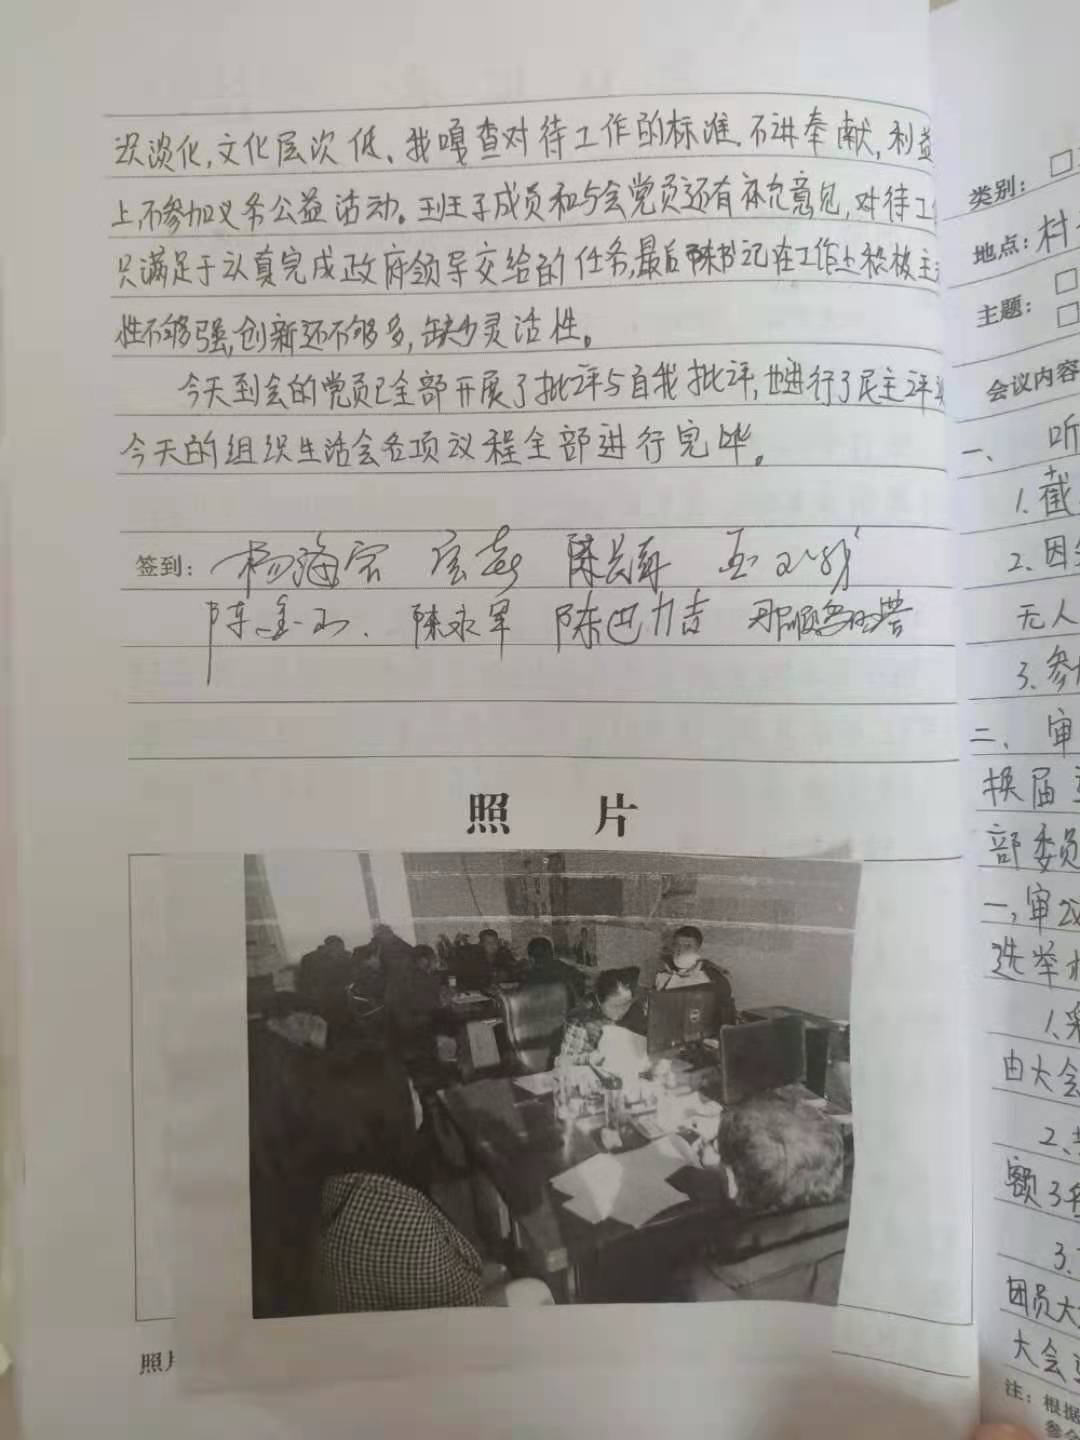 识淡化,文化层次低、我嘎查对待工作的标准.不讲奉献,利益
上,不参加义务公益活动。班子成员和与会党员还有补充意见,对待工
只满足于认真完成政府领导交给的任务,最后陈书记在工作上积极主
性不够强,创新还不够多,缺少灵活性。
今天到会的党员已全部开展了批评与自我批评,也进行了民主评
今天的组织生活会各项议程全部进行完毕。
签到: 杨海
陈永军 陈巴力吉
照 片
照片
类别: □
地点: 村
主题: □
□
会议内容
一、 听
1.截
2.因
无人
3.参
二、审
换届
部委员
一,审议
选举
1、
由大会
2、
额3
3.
团员大
大会
注: 根据
参会